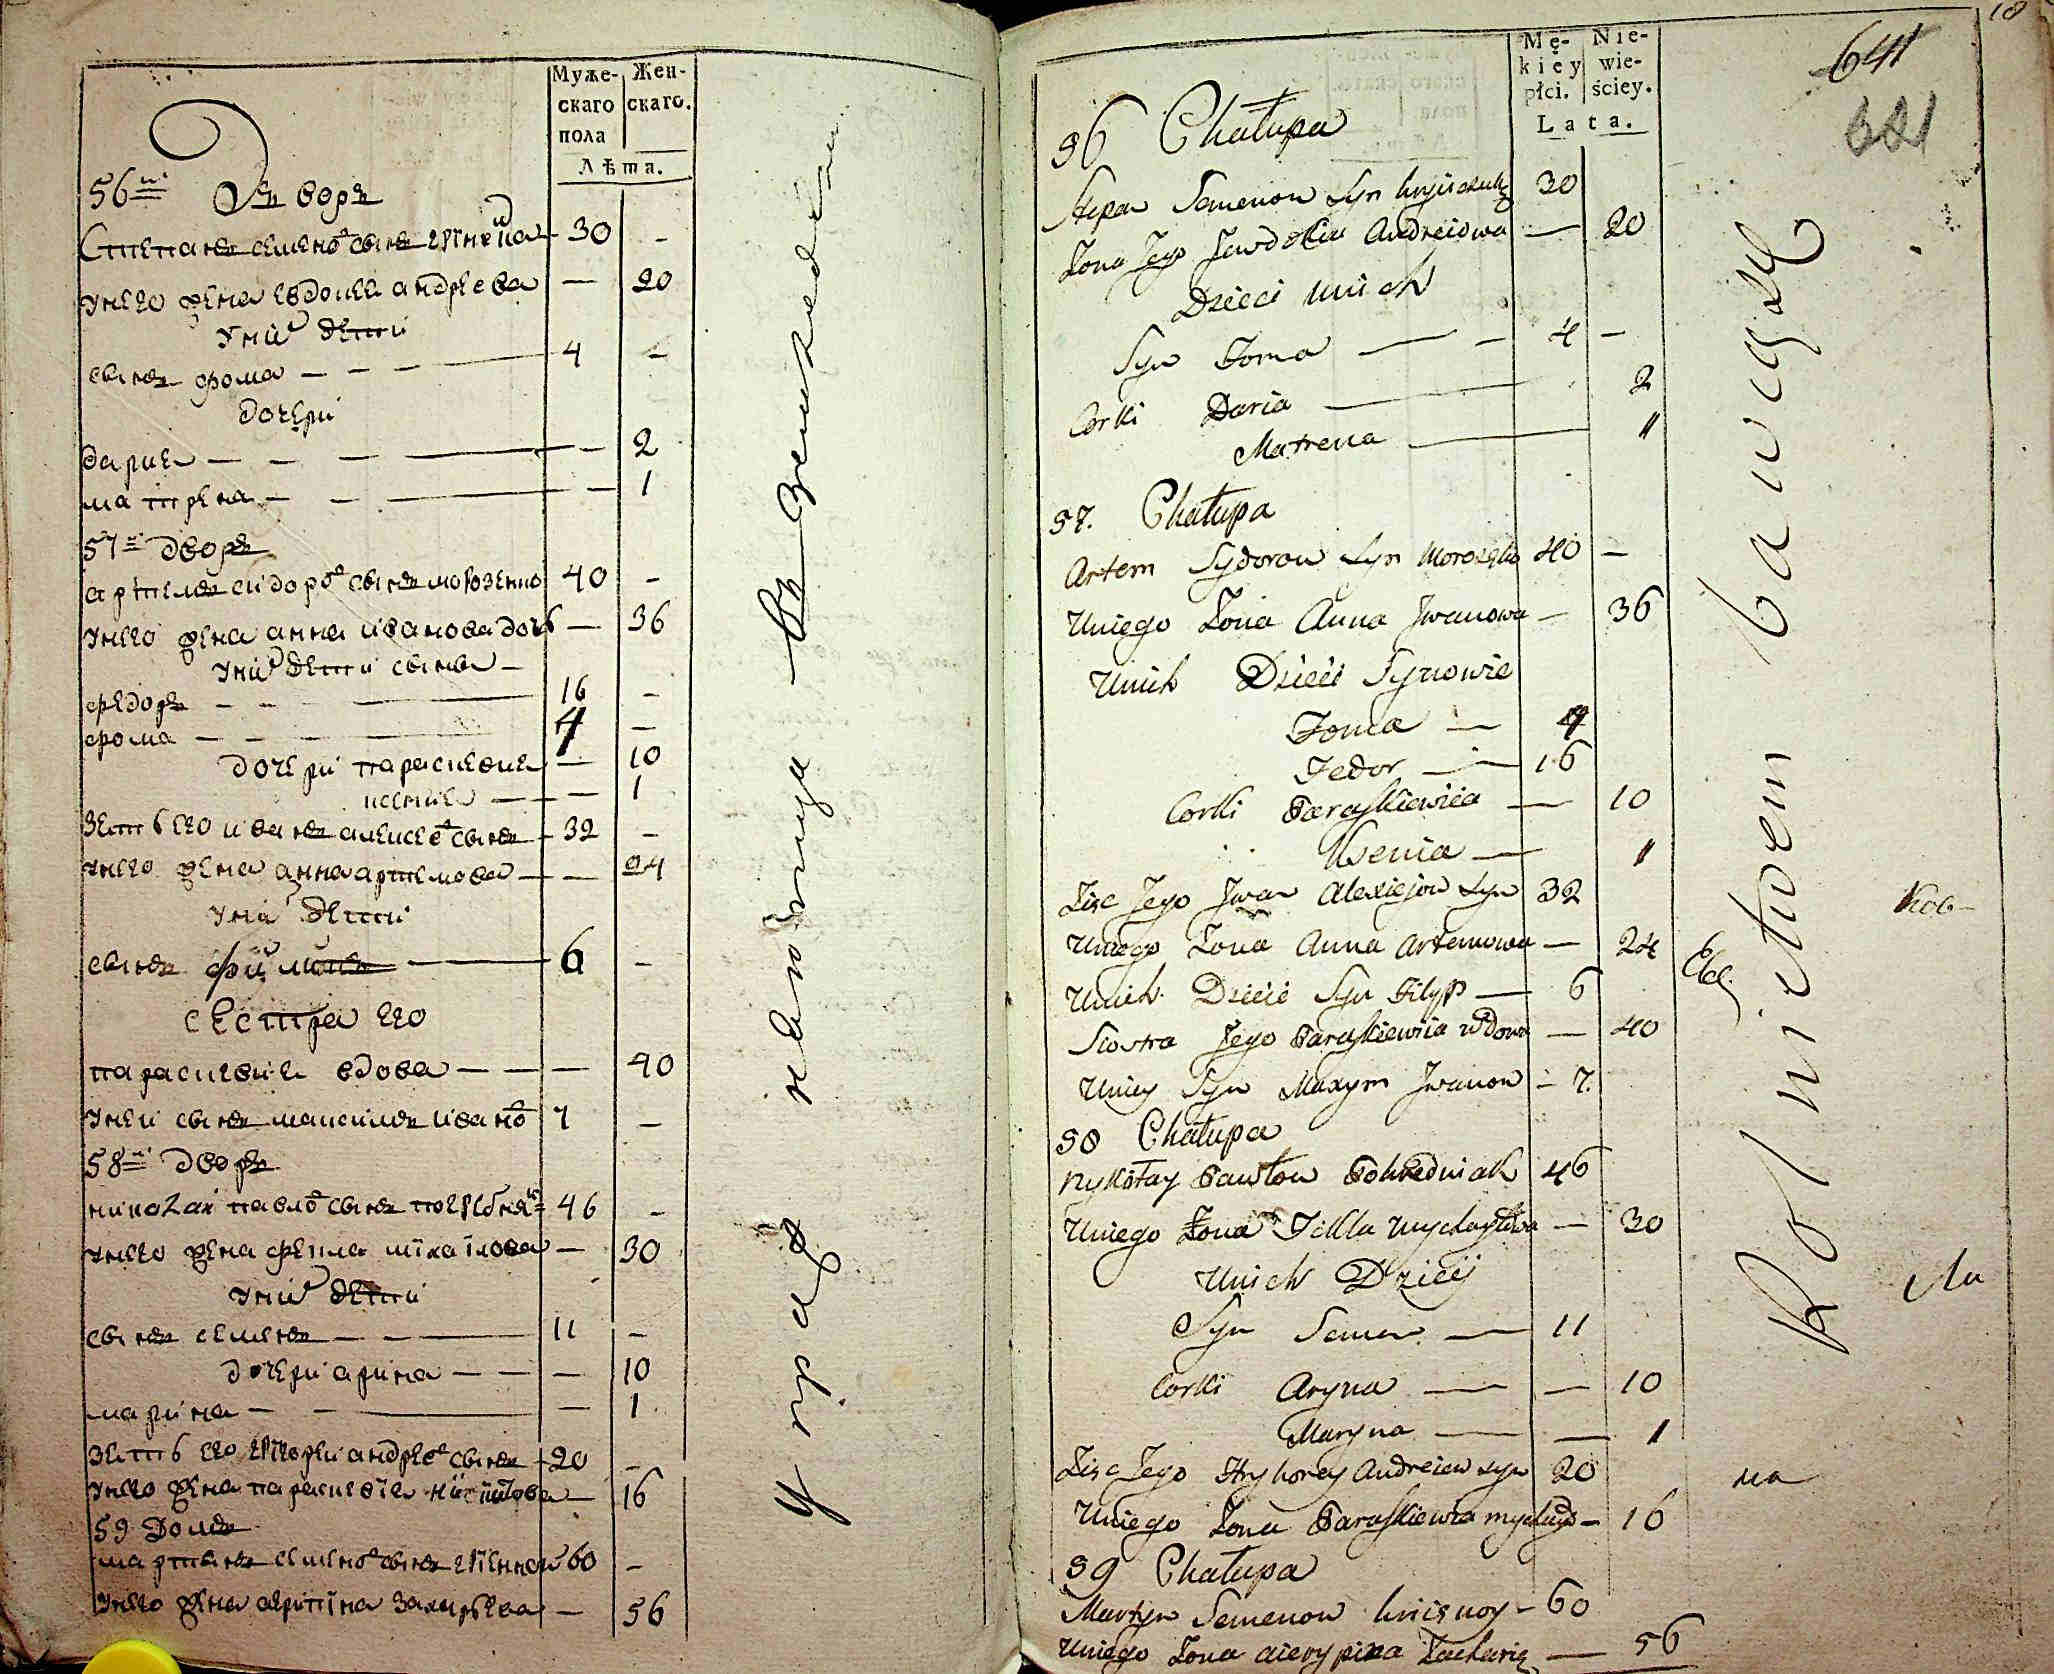 Муже-
скаго
пола
Жен-
скаго.
Лѣта.
56й дворъ
Степанъ семеновъ сынъ 30 -
унего жена евдокия андреева — 20
уних дети
сынъ фома - - - 4 -
дочери
дария - - - - 2
матрена - - - - 1
57й дворъ
артемъ сидоровъ сынъ морозенко 40 -
унего жена анна иванова дочь — 36
уних дети сыны -
федоръ - - - 16 -
фома - - - 4 -
дочери параскевия — 10
ксения - - - 1
зять его иванъ алексеевъ сынъ - 32 -
унего жена анна артемова - — 24
уних дети
сынъ филипъ — 6 -
сестра его
параскевия вдова - - — 40
унеи сынъ максимъ иванов 7 —
58й дворъ
николай павловъ сынъ 46 -
унего жена фекла михаилова — 30
уних дети
сынъ семенъ - - — 11 -
дочери арина - - — 10
марина - - — 1
зять его григории андреевъ сынъ - 20 -
унего жена параскевия — 16
59 Домъ
мартынъ семеновъ сынъ 60 -
унего жена агрипина захарьева — 56
упражняитца въ земледелии
10
641
621
Mę-
kiey
płci.
Nie-
wie-
ściey.
Lata.
56 Chałupa
Stepan Semenow Syn 30
Zona Jego Jewdokia Andreiowa — 20
Dzieci Unich
Syn Foma — - 4 -
Corki Daria — 2
Matrena — 1
57. Chałupa
Artem Sydorow Syn Morozenko 40 -
Uniego Zona Anna Jwanowa - 36
Unich Dzieci Synowie
Foma — 4
Fedor — 16
Corki Paraskiewiia — 10
Ksenia — 1
Zięc Jego Jwan Alexiejow Syn 32
Uniego Zona Anna Artemowa — 24
Unich Dzieci Syn Filyp — 6
Siostra Jego Paraskiewiia Wdowa — 40
Uniey Syn Maxym Jwanow - 7.
58 Chałupa
Nykołay Pawłow 46
Uniego Zona Fekla Mychayłowa — 30
Unich Dzieci
Syn Semen — 11
Corki Aryna — — 10
Maryna — — 1
Zięc Jego Hryhorey Andreiew Syn 20
Uniego Zona Paraskiewia - 16
59 Chałupa
Martyn Semenow - 60
Uniego Zona — 56
Rolnictwem bawią się
на